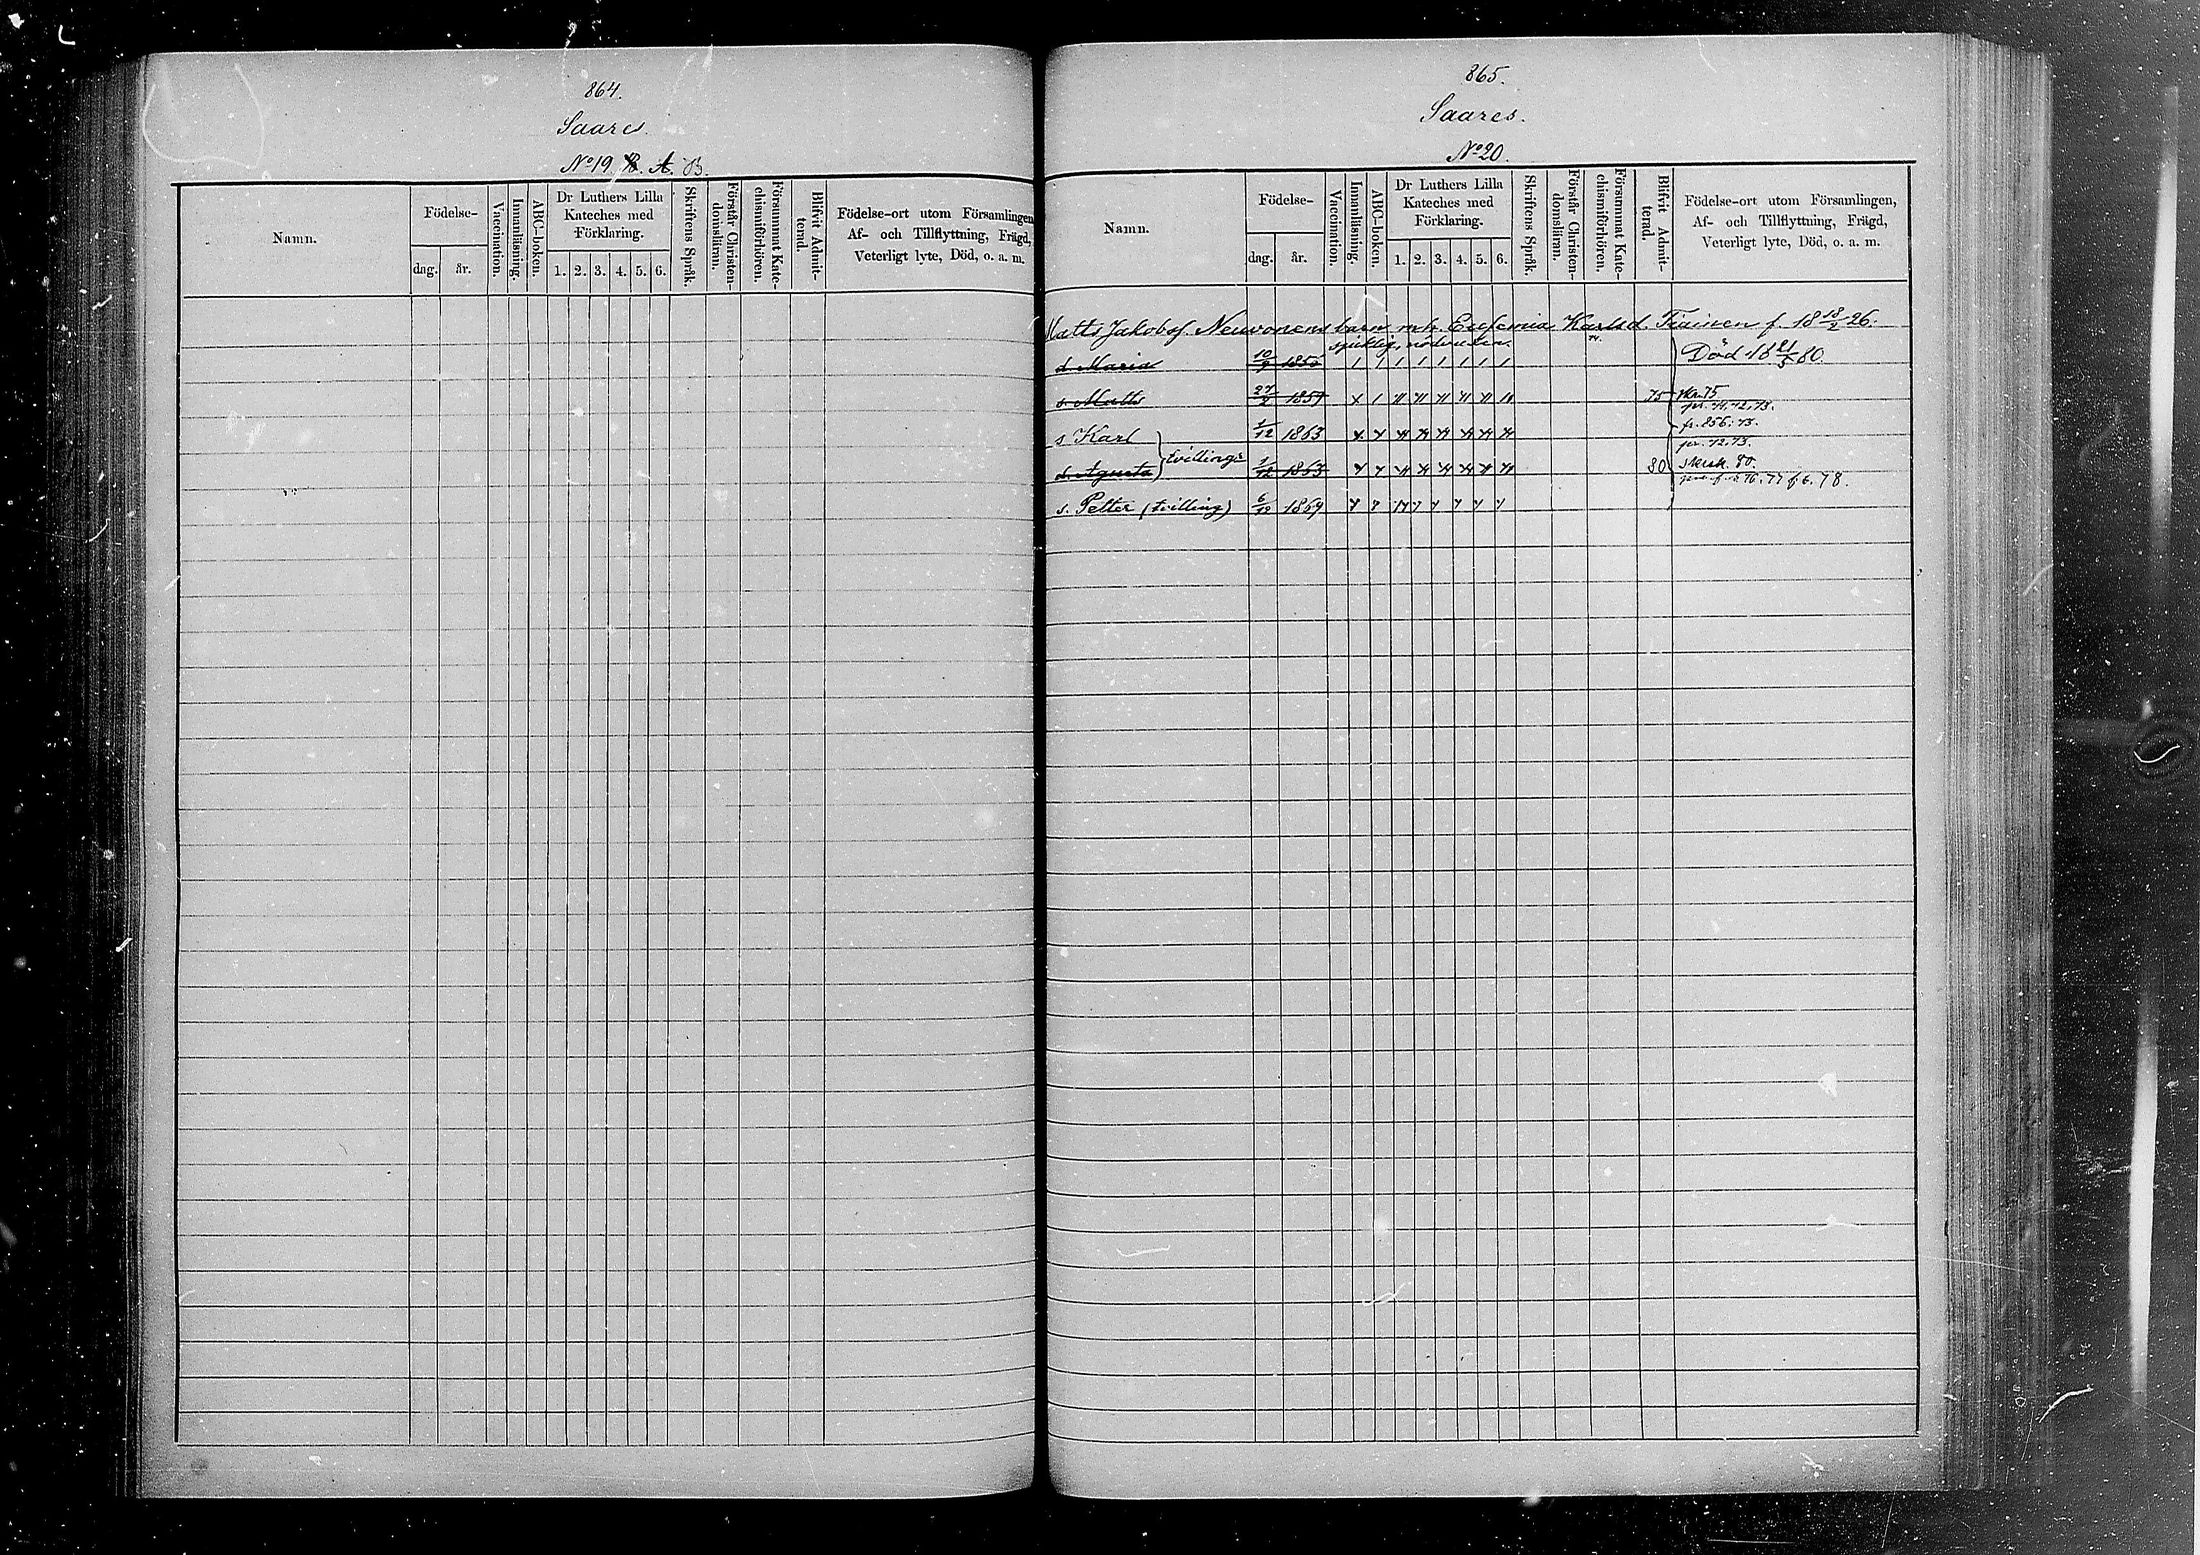 864.
Saares.
No 19 B. A. B.
Namn.
Födelse-
dag. år.
Vaccination.
Innanläsning.
ABC-boken.
Dr Luthers Lilla
Kateches med
Förklaring.
1. 2. 3. 4. 5. 6.
Skriftens Språk.
Förstår Christen-
domsläran.
Försummat Kate-
chismiförhören.
Blifvit Admit-
terad.
Födelse-ort utom Församlingen,
Af- och Tillflyttning, Frägd,
Veterligt lyte, Död, o. a. m.
865.
Saares.
No 20.
Namn.
Födelse-
dag. år.
Vaccination.
Innanläsning.
ABC-boken.
Dr Luthers Lilla
Kateches med
Förklaring.
1. 2. 3. 4. 5. 6.
Skriftens Språk.
Förstår Christen-
domsläran.
Försummat Kate-
chismiförhören.
Blifvit Admit-
terad.
Födelse-ort utom Församlingen,
Af- och Tillflyttning, Frägd,
Veterligt lyte, Död, o. a. m.
Matts Jakobss. Neuvonens barn m.h. Eufemia Karlsd. Tiainen f. 18 18/2 26.
d. Maria 10/9 1850 Död 18 21/5 80.
s. Matts 27/2 1859 75 skr. 75
pr. 71, 72, 73.
s. Karl 1/12 1863 fr. 856. 73.
pr. 72, 73.
d. Agneta tvillingar 1/12 1863 80
s. Petter (tvilling) 6/12 1869 76. 77 f. 6. 78.